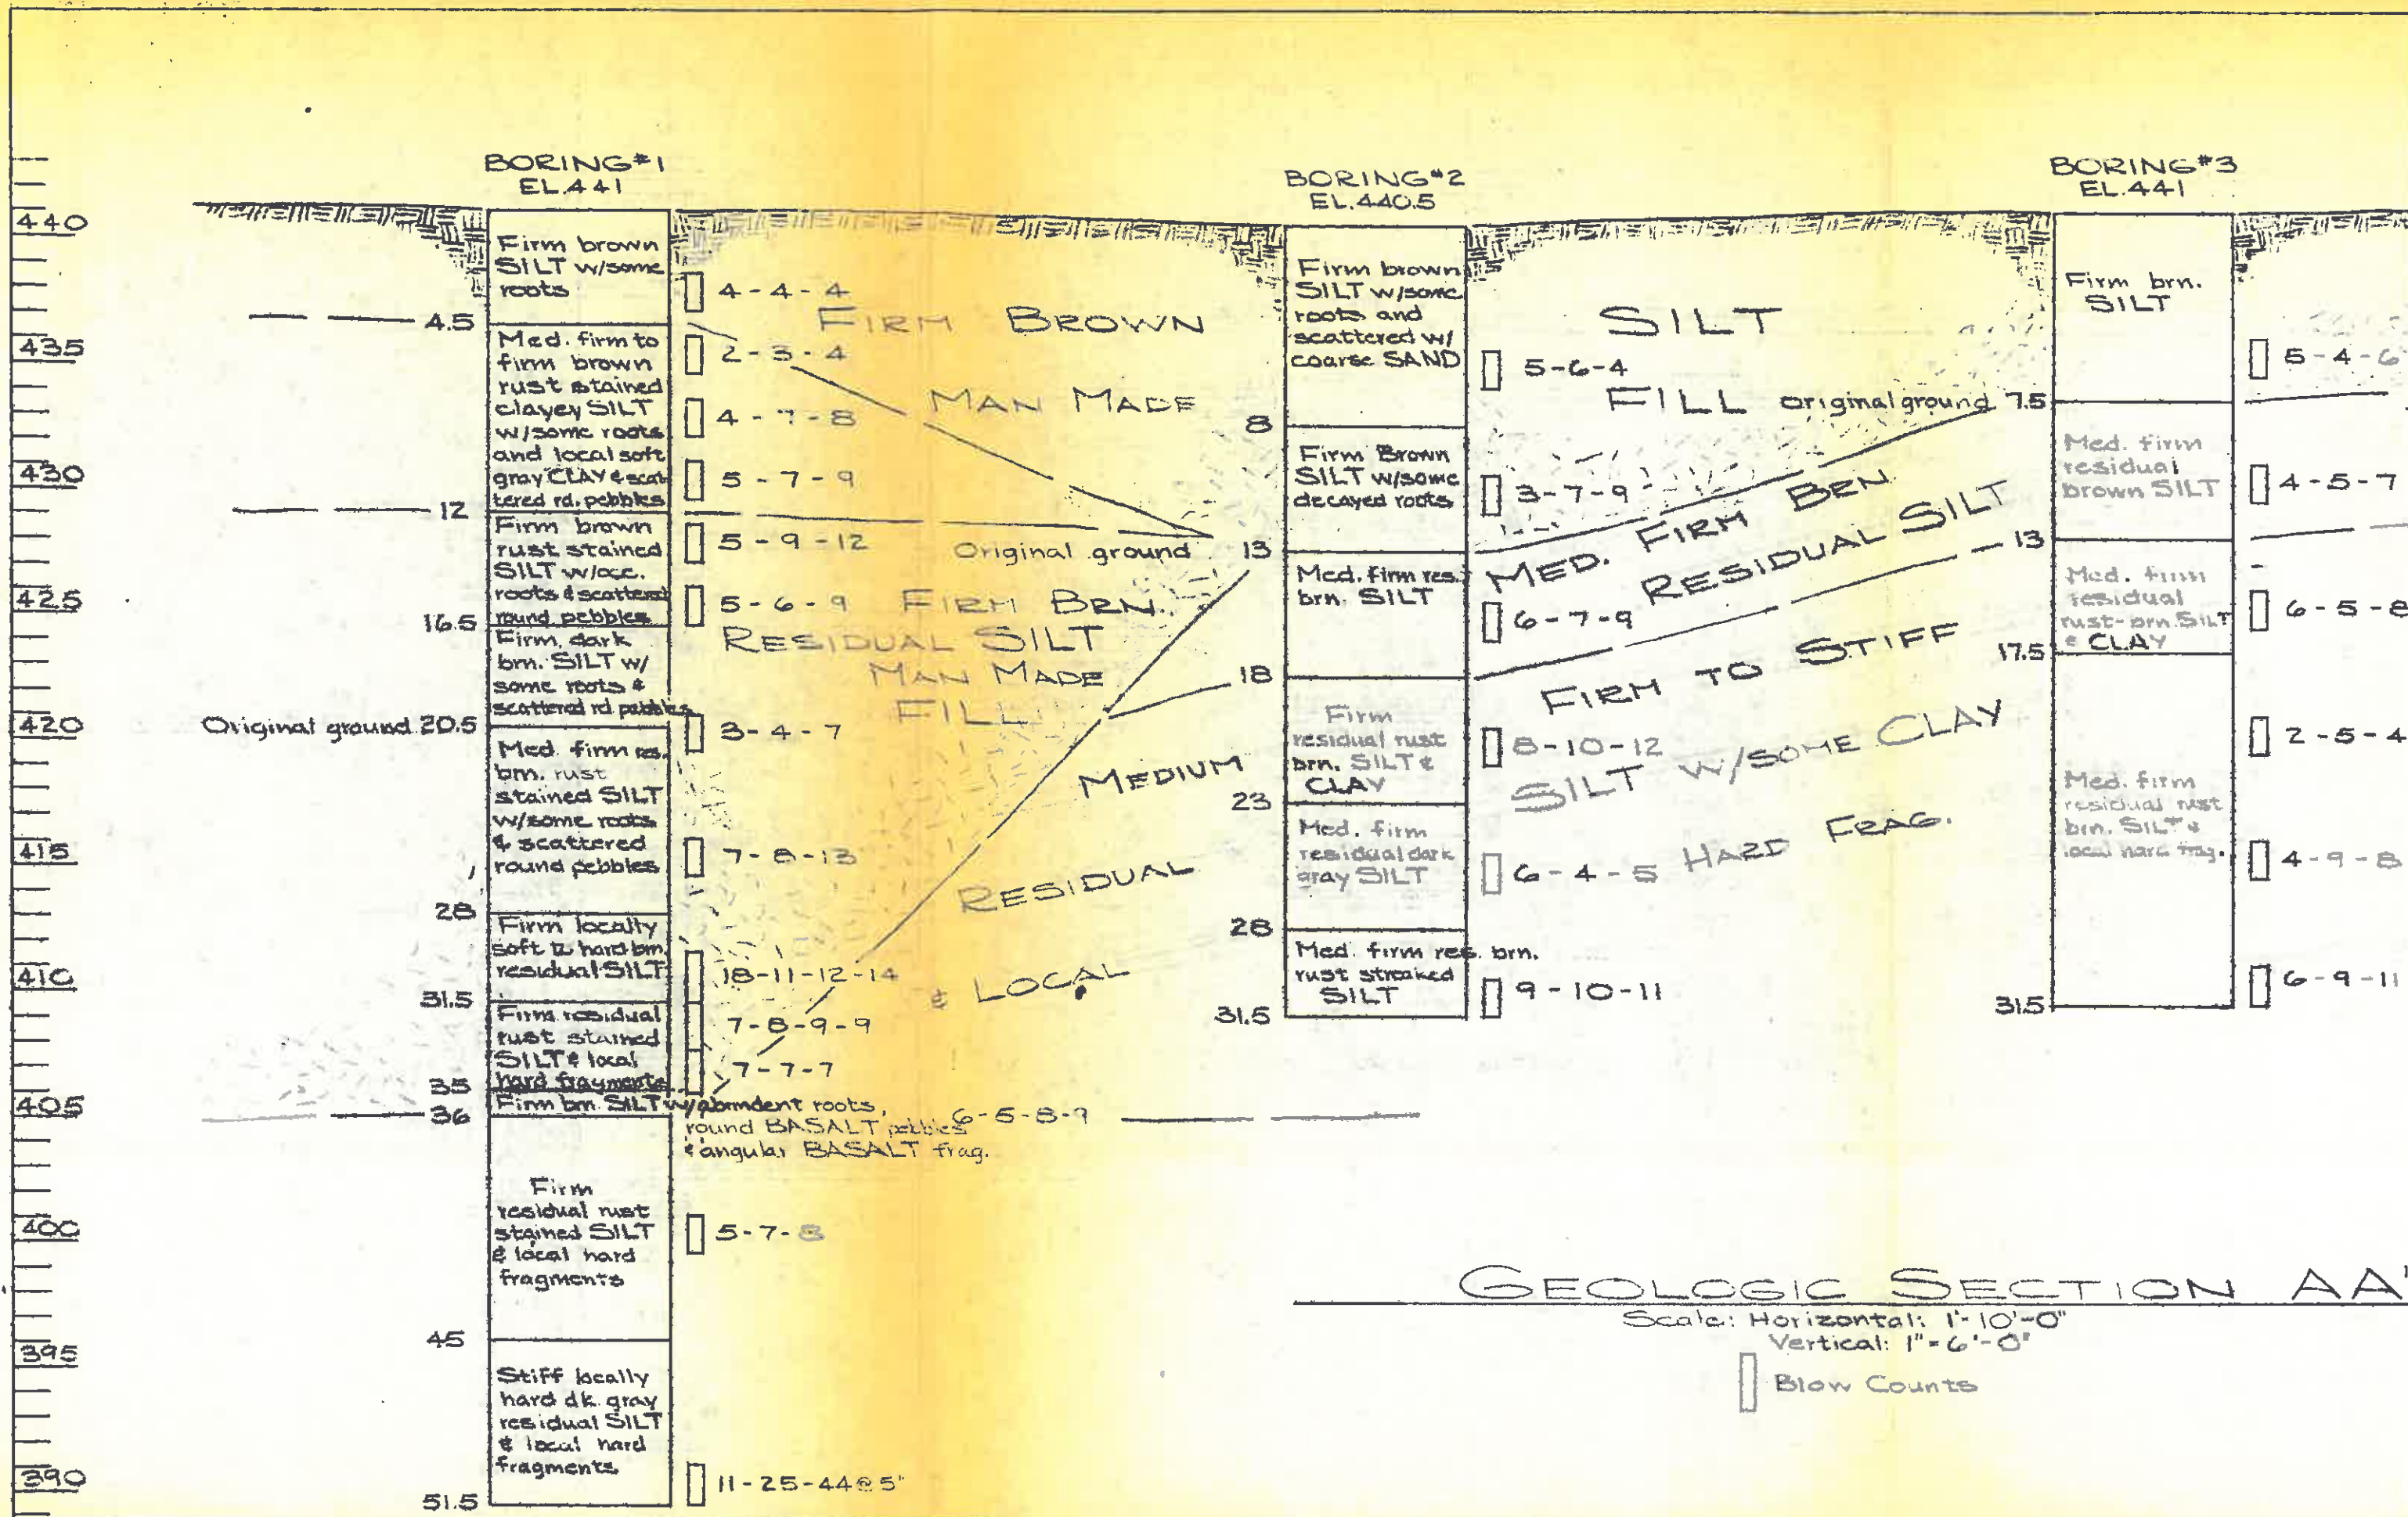 BORING #1
EL.441
BORING #2
EL.440.5
BORING #3
EL.441
440
435
430
425
420
415
410
405
400
395
390
Firm brown
SILT w/some
roots
4.5
Med. firm to
firm brown
rust stained
clayey SILT
w/some roots
and local soft
gray CLAY & scat
tered rd. pebbles
12
Firm brown
rust stained
SILT w/occ.
roots & scattered
round pebbles
16.5
Firm dark
brn. SILT w/
some roots &
scattered rd pebbles
Original ground 20.5
Med. firm res.
brn. rust
stained SILT
w/some roots
& scattered
round pebbles
28
Firm locally
soft to hard brn.
residual SILT
31.5
Firm residual
rust stained
SILT & local
hard fragments
35
Firm brn. SILT w/abundent roots,
round BASALT pebbles
& angular BASALT frag.
36
Firm
residual rust
stained SILT
& local hard
fragments
45
Stiff locally
hard dk. gray
residual SILT
& local hard
fragments
51.5
4-4-4
2-3-4
4-7-8
5-7-9
5-9-12
5-6-9
3-4-7
7-8-13
18-11-12-14
7-8-9-9
7-7-7
6-5-8-9
5-7-8
11-25-44@5"
FIRM BROWN
MAN MADE
Original ground
FIRM BRN.
RESIDUAL SILT
MAN MADE
FILL
MEDIUM
RESIDUAL
& LOCAL
Firm brown
SILT w/some
roots and
scattered w/
coarse SAND
8
Firm Brown
SILT w/some
decayed roots
13
Med. firm res.
brn. SILT
18
Firm
residual rust
brn. SILT &
CLAY
23
Med. firm
residual dark
gray SILT
28
Med. firm res. brn.
rust streaked
SILT
31.5
5-6-4
3-7-9
6-7-9
8-10-12
6-4-5
9-10-11
SILT
FILL
Original ground 7.5
MED. FIRM BRN
RESIDUAL SILT
13
FIRM TO STIFF
17.5
SILT W/SOME CLAY
HARD FRAG.
31.5
Firm brn.
SILT
Med. firm
residual
brown SILT
Med. firm
residual
rust-brn. SILT
& CLAY
Med. firm
residual rust
brn. SILT &
local hard frag.
5-4-6
4-5-7
6-5-8
2-5-4
4-9-8
6-9-11
GEOLOGIC SECTION AA'
Scale: Horizontal: 1"-10'-0"
Vertical: 1"=6'-0"
Blow Counts